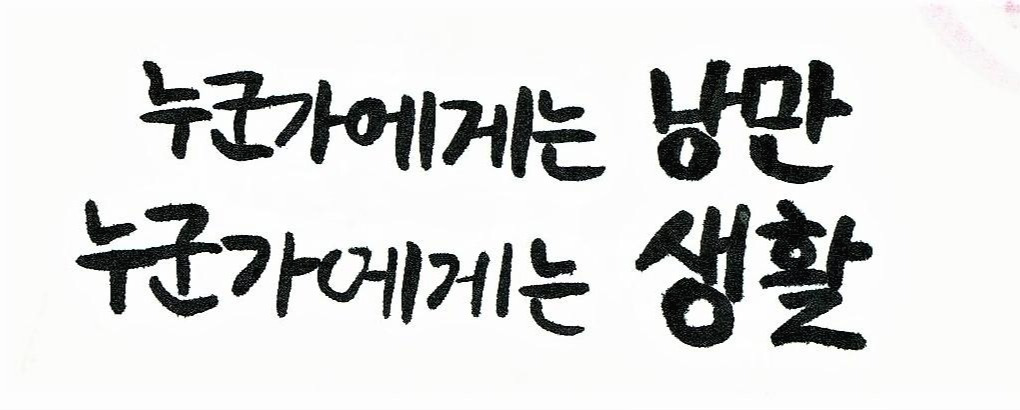 누군가에게는 낭만
누군가에게는 생활